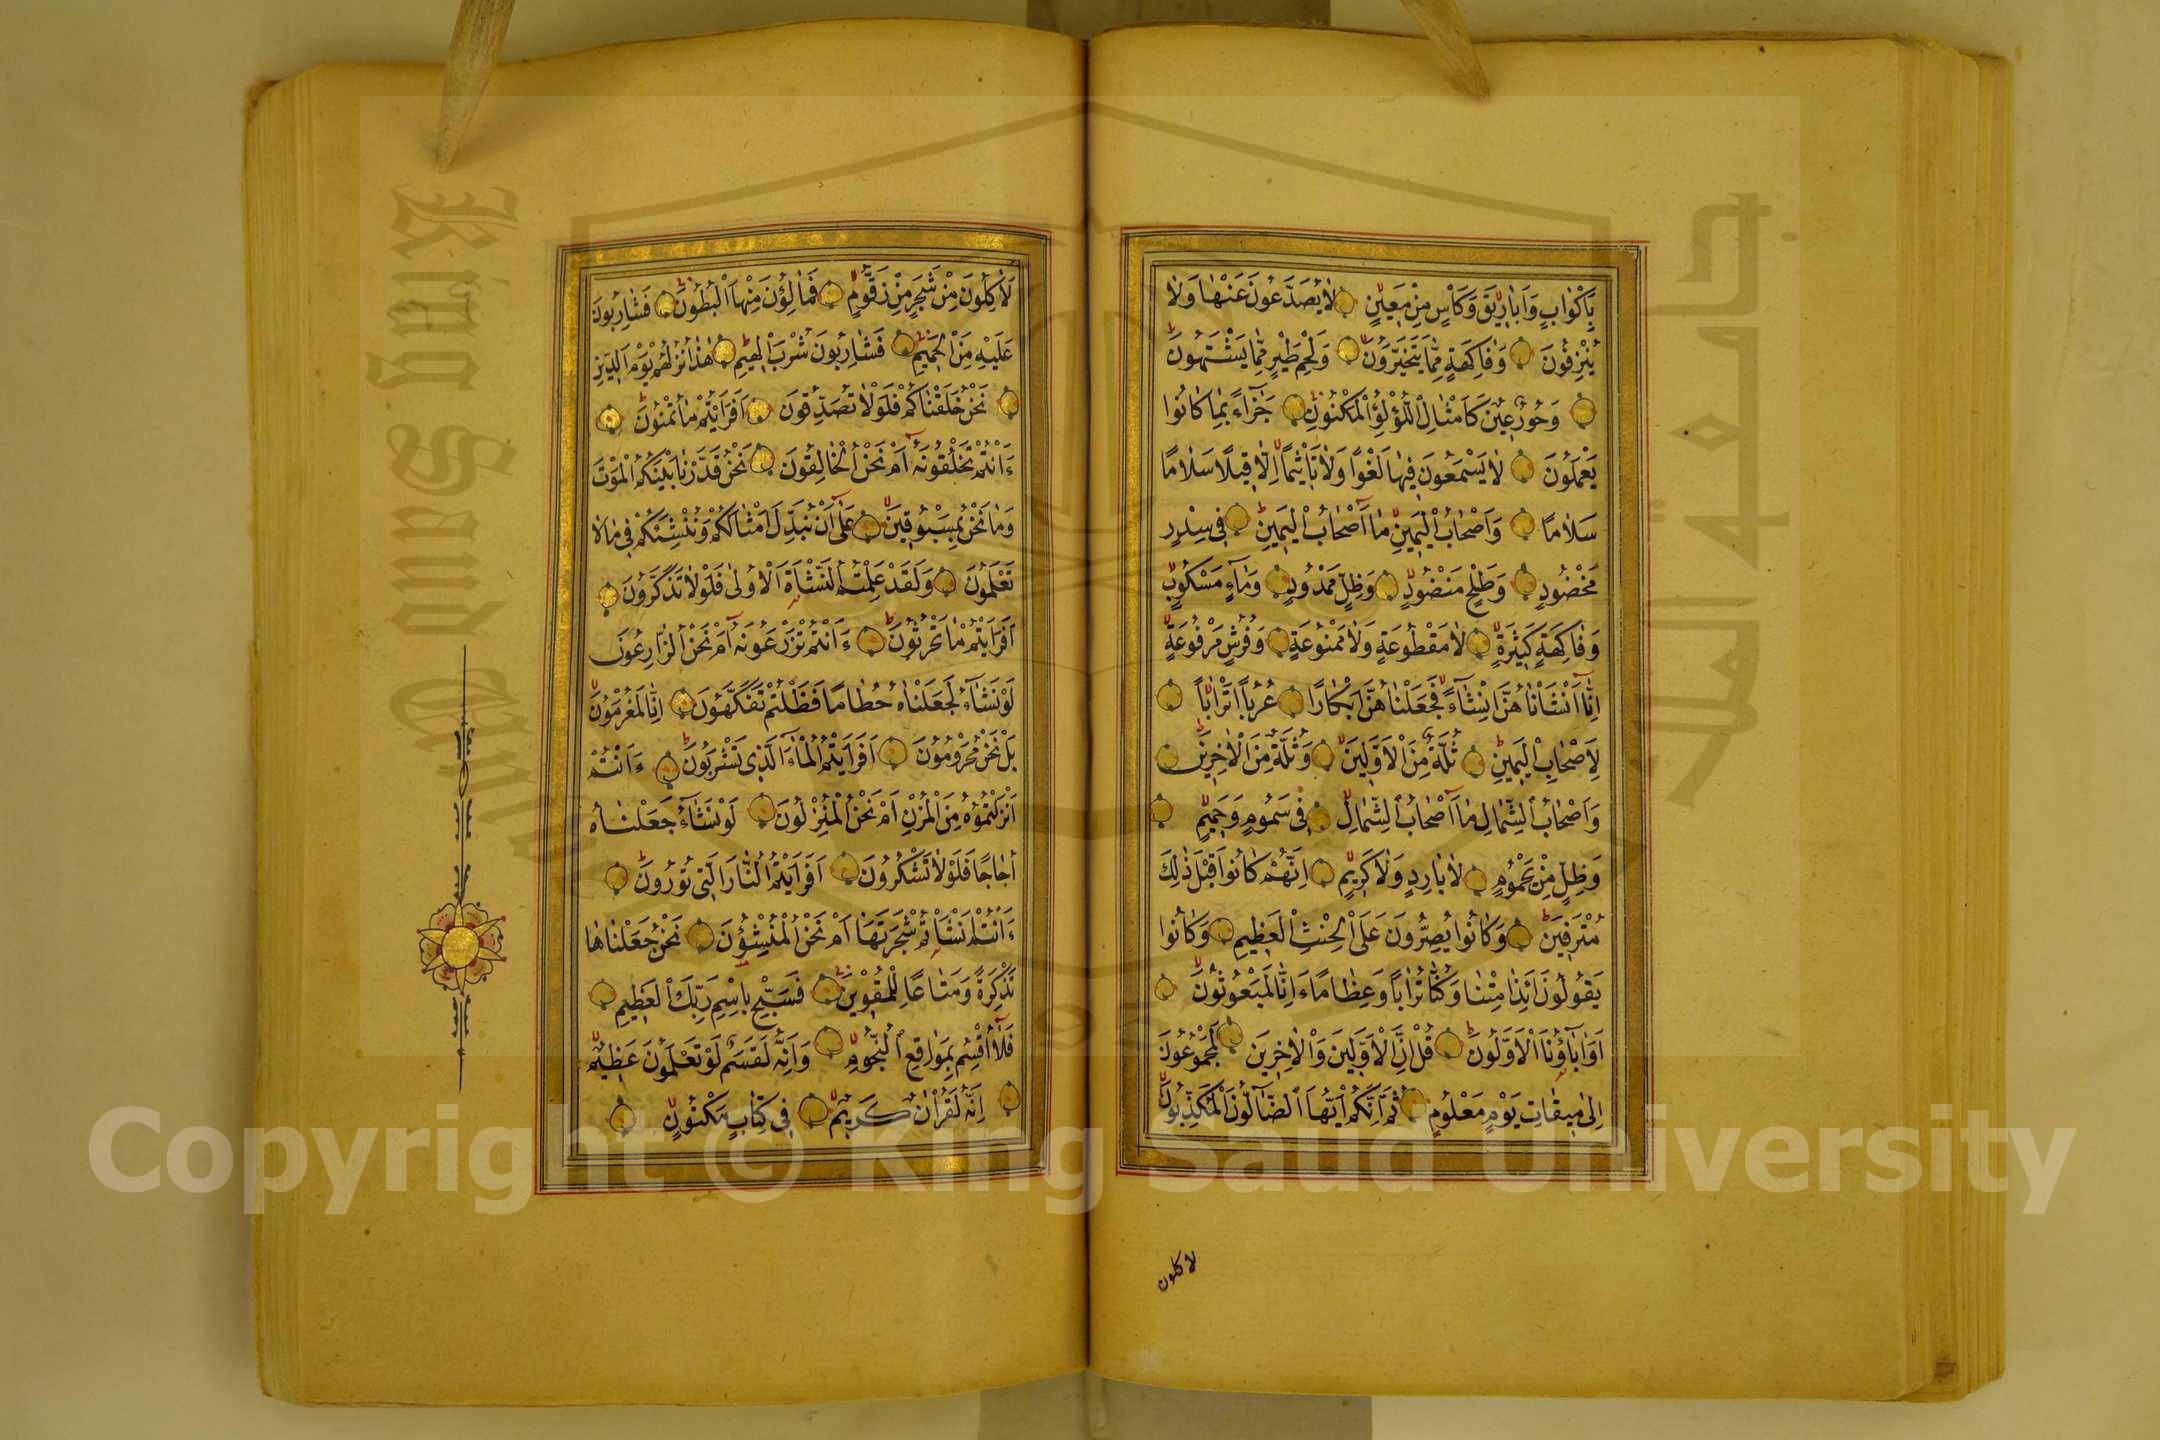 بِاَكْوَابٍ وَاَبَارٖيقَ وَكَأْسٍ مِنْ مَعٖينٍ لَا يُصَدَّعُونَ عَنْهَا وَلَا
يُنْزِفُونَ وَفَاكِهَةٍ مِمَّا يَتَخَيَّرُونَ وَلَحْمِ طَيْرٍ مِمَّا يَشْتَهُونَ
وَحُورٌ عٖينٌ كَاَمْثَالِ اللُّؤْلُؤِ الْمَكْنُونِ جَزَآءً بِمَا كَانُوا
يَعْمَلُونَ لَا يَسْمَعُونَ فٖيهَا لَغْوًا وَلَا تَأْثٖيمًا اِلَّا قٖيلًا سَلَامًا
سَلَامًا وَاَصْحَابُ الْيَمٖينِ مَآ اَصْحَابُ الْيَمٖينِ فٖى سِدْرٍ
مَخْضُودٍ وَطَلْحٍ مَنْضُودٍ وَظِلٍّ مَمْدُودٍ وَمَآءٍ مَسْكُوبٍ
وَفَاكِهَةٍ كَثٖيرَةٍ لَا مَقْطُوعَةٍ وَلَا مَمْنُوعَةٍ وَفُرُشٍ مَرْفُوعَةٍ
اِنَّآ اَنْشَأْنَاهُنَّ اِنْشَآءً فَجَعَلْنَاهُنَّ اَبْكَارًا عُرُبًا اَتْرَابًا
لِاَصْحَابِ الْيَمٖينِ ثُلَّةٌ مِنَ الْاَوَّلٖينَ وَثُلَّةٌ مِنَ الْاٰخِرٖينَ
وَاَصْحَابُ الشِّمَالِ مَآ اَصْحَابُ الشِّمَالِ فٖى سَمُومٍ وَحَمٖيمٍ
وَظِلٍّ مِنْ يَحْمُومٍ لَا بَارِدٍ وَلَا كَرٖيمٍ اِنَّهُمْ كَانُوا قَبْلَ ذٰلِكَ
مُتْرَفٖينَ وَكَانُوا يُصِرُّونَ عَلَى الْحِنْثِ الْعَظٖيمِ وَكَانُوا
يَقُولُونَ اَئِذَا مِتْنَا وَكُنَّا تُرَابًا وَعِظَامًا ءَاِنَّا لَمَبْعُوثُونَ
اَوَاٰبَآؤُنَا الْاَوَّلُونَ قُلْ اِنَّ الْاَوَّلٖينَ وَالْاٰخِرٖينَ لَمَجْمُوعُونَ
اِلٰى مٖيقَاتِ يَوْمٍ مَعْلُومٍ ثُمَّ اِنَّكُمْ اَيُّهَا الضَّآلُّونَ الْمُكَذِّبُونَ
لاكلون
لَاٰكِلُونَ مِنْ شَجَرٍ مِنْ زَقُّومٍ فَمَالِؤُنَ مِنْهَا الْبُطُونَ فَشَارِبُونَ
عَلَيْهِ مِنَ الْحَمٖيمِ فَشَارِبُونَ شُرْبَ الْهٖيمِ هٰذَا نُزُلُهُمْ يَوْمَ الدّٖينِ
نَحْنُ خَلَقْنَاكُمْ فَلَوْلَا تُصَدِّقُونَ اَفَرَاَيْتُمْ مَا تُمْنُونَ
ءَاَنْتُمْ تَخْلُقُونَهُٓ اَمْ نَحْنُ الْخَالِقُونَ نَحْنُ قَدَّرْنَا بَيْنَكُمُ الْمَوْتَ
وَمَا نَحْنُ بِمَسْبُوقٖينَ عَلٰٓى اَنْ نُبَدِّلَ اَمْثَالَكُمْ وَنُنْشِئَكُمْ فٖى مَا لَا
تَعْلَمُونَ وَلَقَدْ عَلِمْتُمُ النَّشْاَةَ الْاُولٰى فَلَوْلَا تَذَكَّرُونَ
اَفَرَاَيْتُمْ مَا تَحْرُثُونَ ءَاَنْتُمْ تَزْرَعُونَهُٓ اَمْ نَحْنُ الزَّارِعُونَ
لَوْ نَشَآءُ لَجَعَلْنَاهُ حُطَامًا فَظَلْتُمْ تَفَكَّهُونَ اِنَّا لَمُغْرَمُونَ
بَلْ نَحْنُ مَحْرُومُونَ اَفَرَاَيْتُمُ الْمَآءَ الَّذٖى تَشْرَبُونَ ءَاَنْتُمْ
اَنْزَلْتُمُوهُ مِنَ الْمُزْنِ اَمْ نَحْنُ الْمُنْزِلُونَ لَوْ نَشَآءُ جَعَلْنَاهُ
اُجَاجًا فَلَوْلَا تَشْكُرُونَ اَفَرَاَيْتُمُ النَّارَ الَّتٖى تُورُونَ
ءَاَنْتُمْ اَنْشَأْتُمْ شَجَرَتَهَآ اَمْ نَحْنُ الْمُنْشِؤُنَ نَحْنُ جَعَلْنَاهَا
تَذْكِرَةً وَمَتَاعًا لِلْمُقْوٖينَ فَسَبِّحْ بِاسْمِ رَبِّكَ الْعَظٖيمِ
فَلَآ اُقْسِمُ بِمَوَاقِعِ النُّجُومِ وَاِنَّهُ لَقَسَمٌ لَوْ تَعْلَمُونَ عَظٖيمٌ
اِنَّهُ لَقُرْاٰنٌ كَرٖيمٌ فٖى كِتَابٍ مَكْنُونٍ
King Saud University
جامعة الملك
Copyright © King Saud University